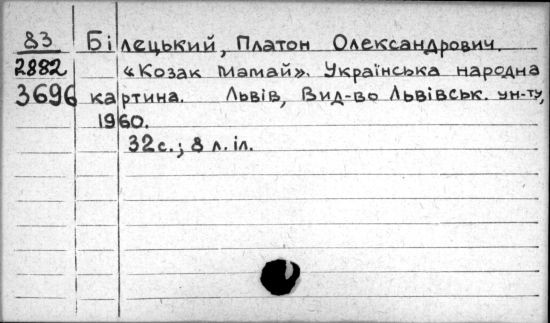 83 Білецький, Платон Олександрович.
2882 «Козак Мамай». Українська народна
3696 картина. Львів, Вид-во Львівськ. ун-ту,
1960.
32 с.; 8 л. іл.